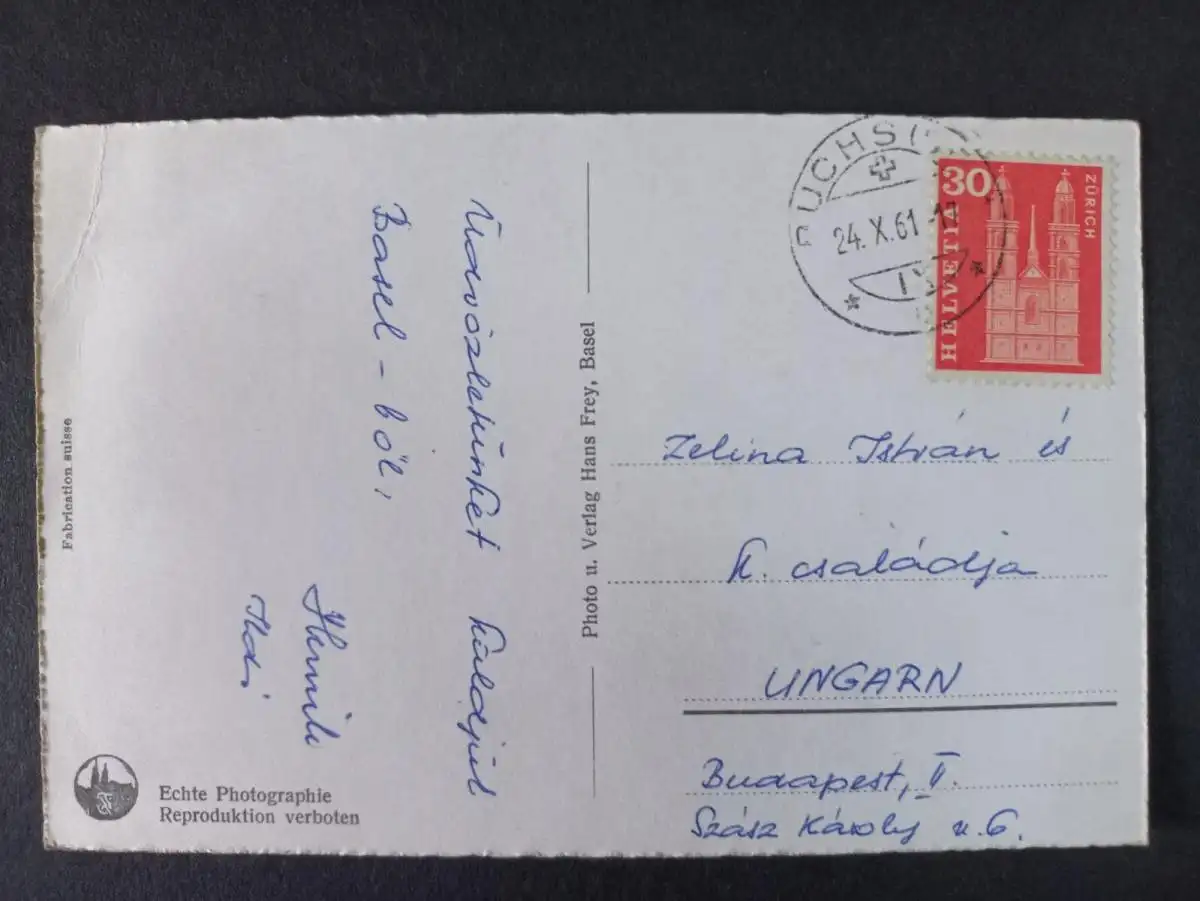 Üdvözletünket küldjük
Basel-ből,
Ildi
Photo u. Verlag Hans Frey, Basel
Fabrication suisse
Echte Photographie
Reproduktion verboten
24.X.61
30
HELVETIA
ZÜRICH
Zelina István és
k. családja
UNGARN
Budapest, II.
Szász Károly u. 6.